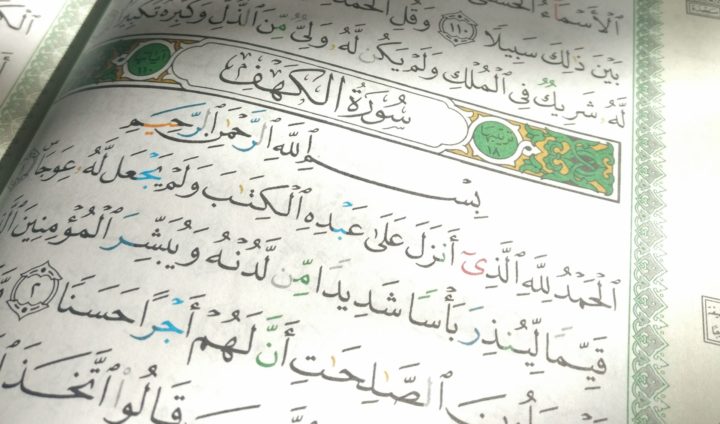 ٱلْأَسْمَآءُ ٱلْحُسْنَىٰ
بَيْنَ ذَٰلِكَ سَبِيلًا ١١٠ وَقُلِ ٱلْحَمْدُ
لَّهُۥ شَرِيكٌ فِى ٱلْمُلْكِ وَلَمْ يَكُن لَّهُۥ وَلِىٌّ مِّنَ ٱلذُّلِّ وَكَبِّرْهُ تَكْبِيرًا
سُورَةُ الكَهْفِ
بِسْمِ ٱللَّهِ ٱلرَّحْمَٰنِ ٱلرَّحِيمِ
ٱلْحَمْدُ لِلَّهِ ٱلَّذِىٓ أَنزَلَ عَلَىٰ عَبْدِهِ ٱلْكِتَٰبَ وَلَمْ يَجْعَل لَّهُۥ عِوَجَا
قَيِّمًا لِّيُنذِرَ بَأْسًا شَدِيدًا مِّن لَّدُنْهُ وَيُبَشِّرَ ٱلْمُؤْمِنِينَ
ٱلصَّٰلِحَٰتِ أَنَّ لَهُمْ أَجْرًا حَسَنًا ٢
قَالُوا۟ ٱتَّخَذَ